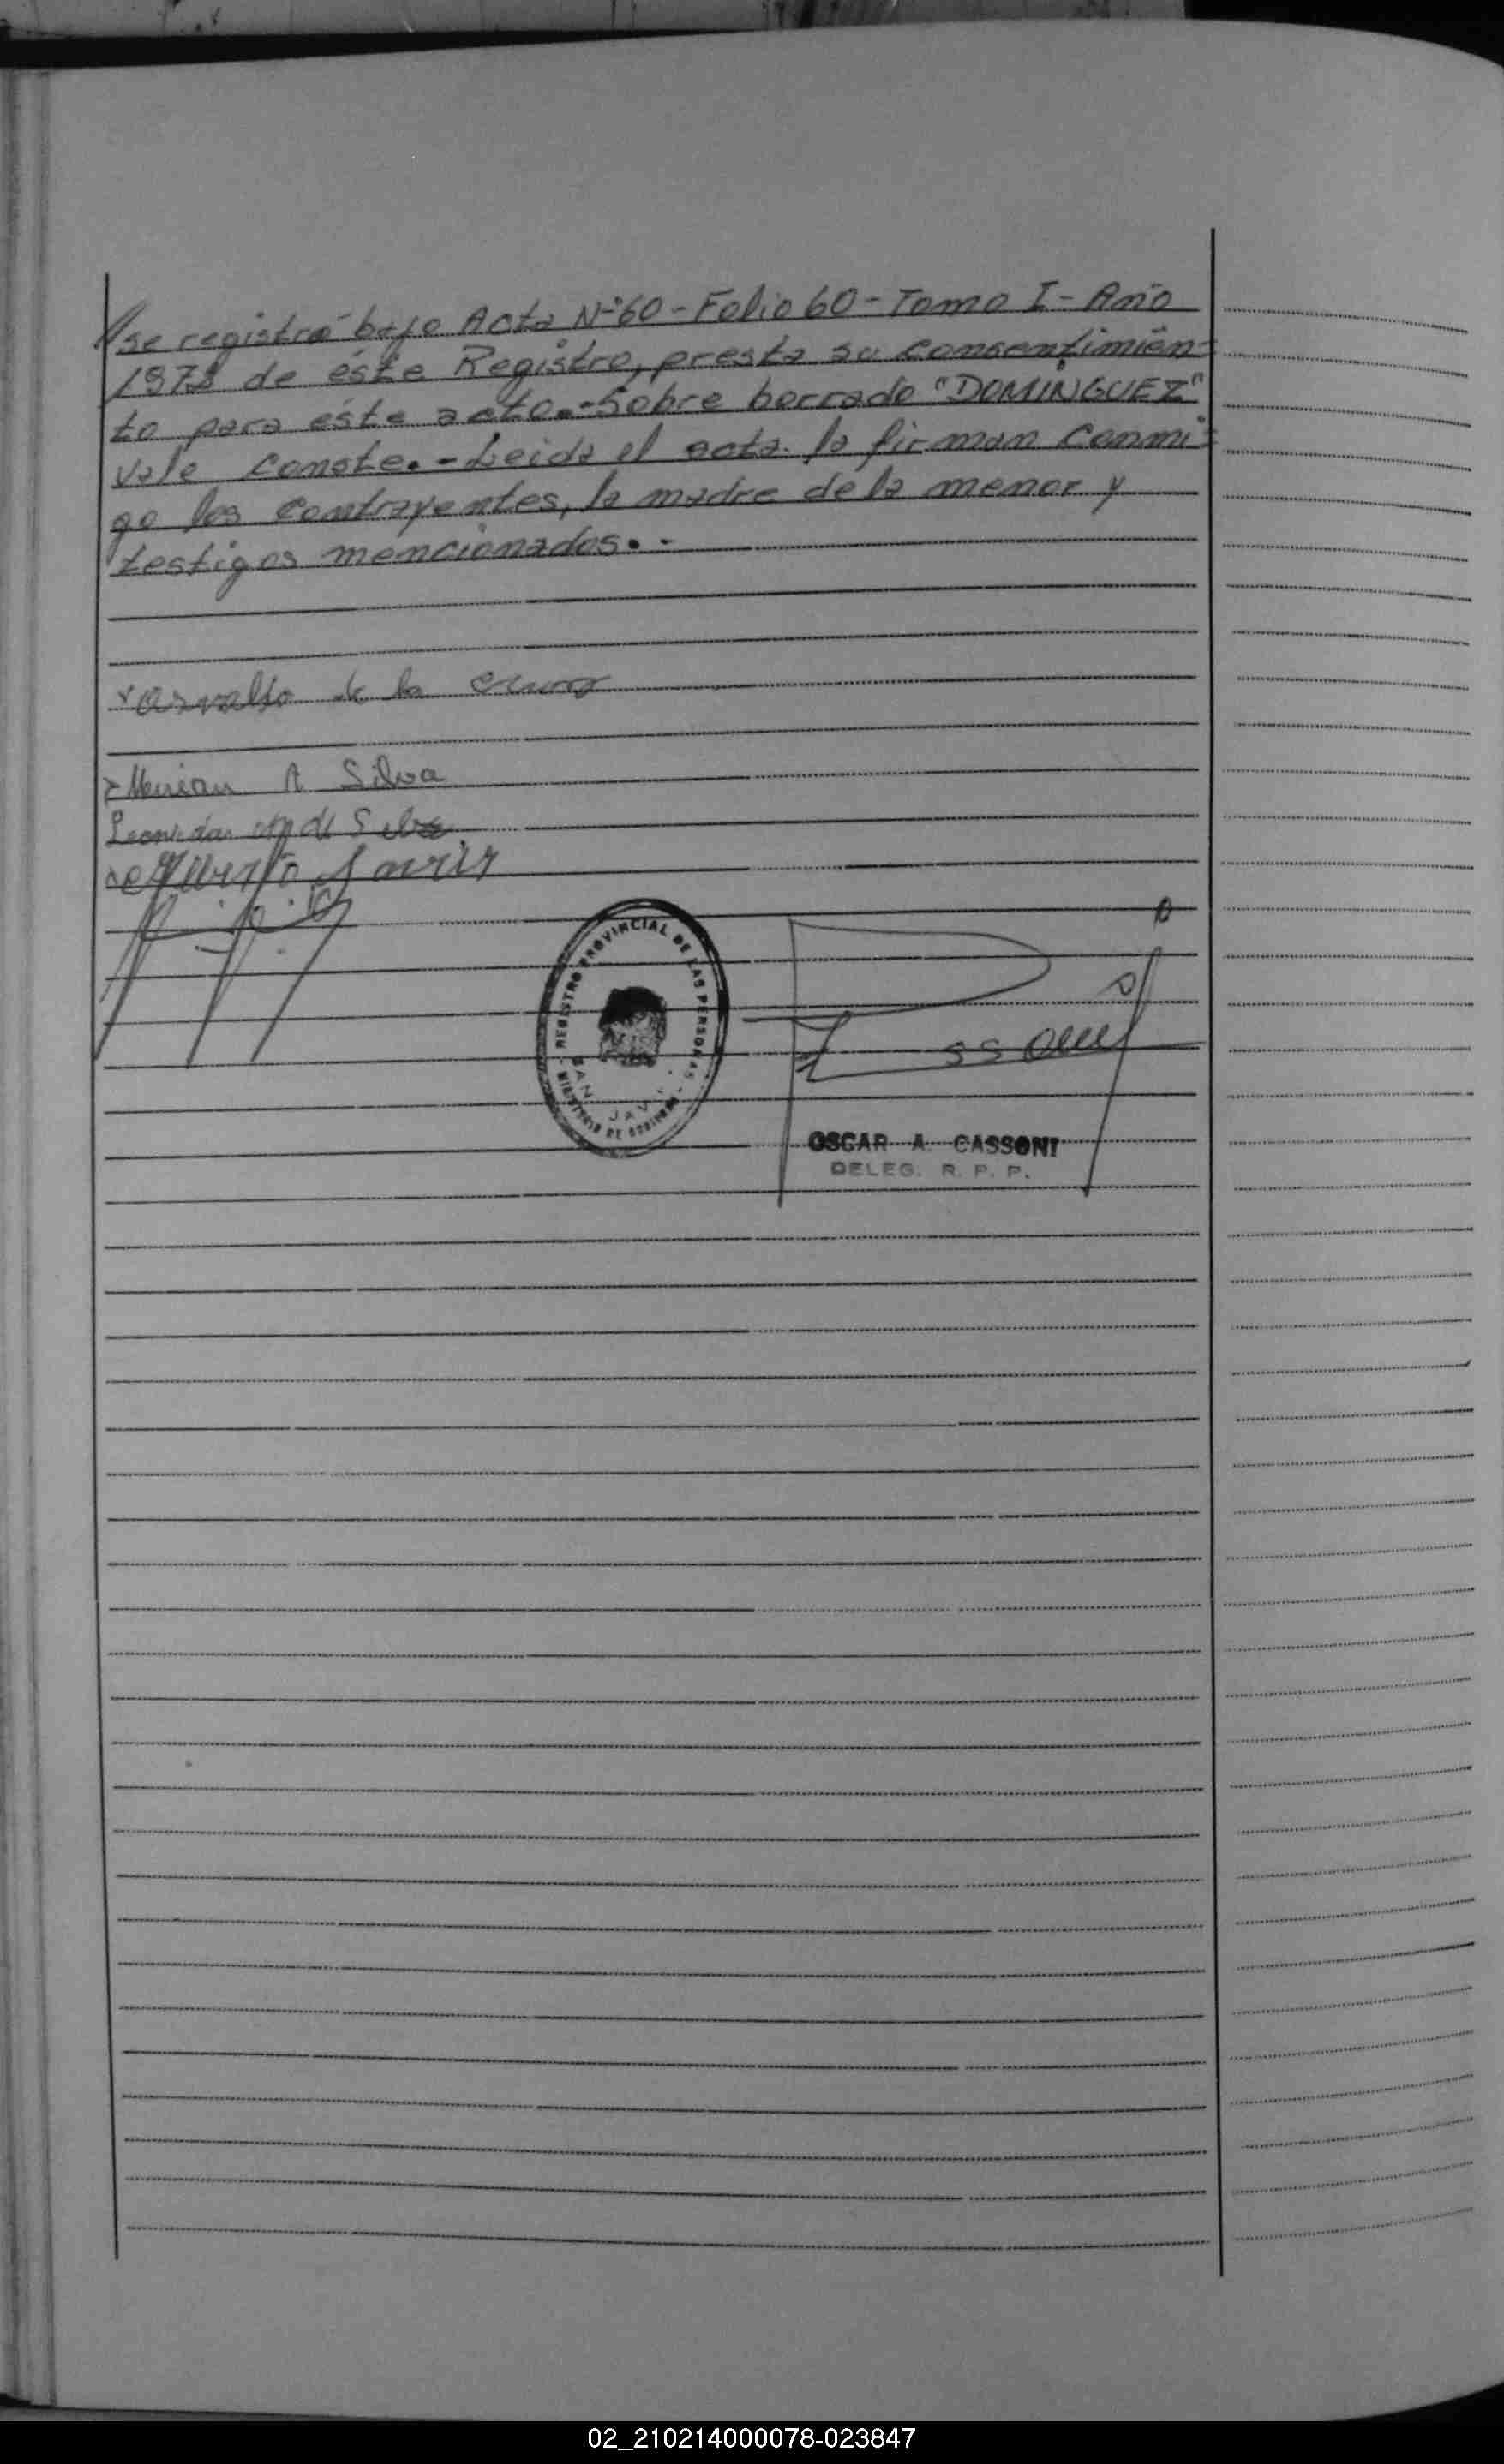 se registró bajo Acta Nº 60 - Folio 60 - Tomo I - Año
de éste Registro, presta su consentimien-
to para éste acto.- Sobre borrado "DOMINGUEZ"
Vale Conste. - Leida el acta. la firman conmi-
go los contrayentes, la madre de la menor y
testigos mencionados. -
Osvaldo de la Cruz
Mirian A Silva
Leonidas de Silva
Alberto
REGISTRO PROVINCIAL DE LAS PERSONAS
MINISTERIO DE GOBIERNO
SAN JAVI
OSCAR A. CASSONI
DELEG. R. P. P.
02_210214000078-023847